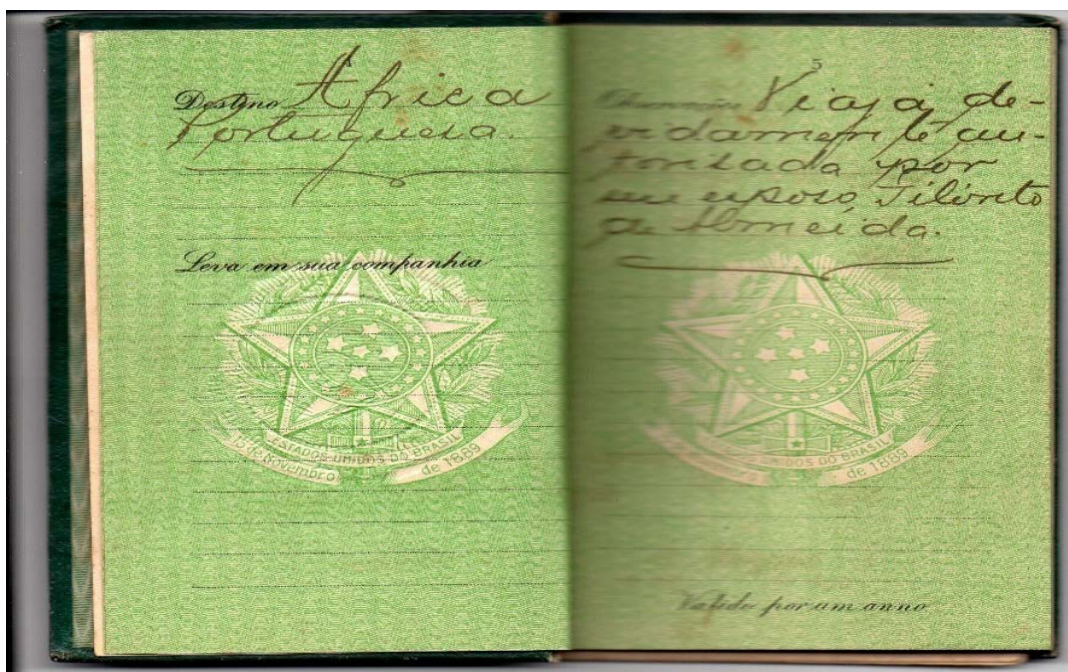 Destino Africa
Portuguesa.
Leva em sua companhia
ESTADOS UNIDOS DO BRASIL
15 de Novembro de 1889
5
Observações Viaja de-
vidamente au-
torisada por
seu esposo
de Almeida.
ESTADOS UNIDOS DO BRASIL
de 1889
Valido por um anno